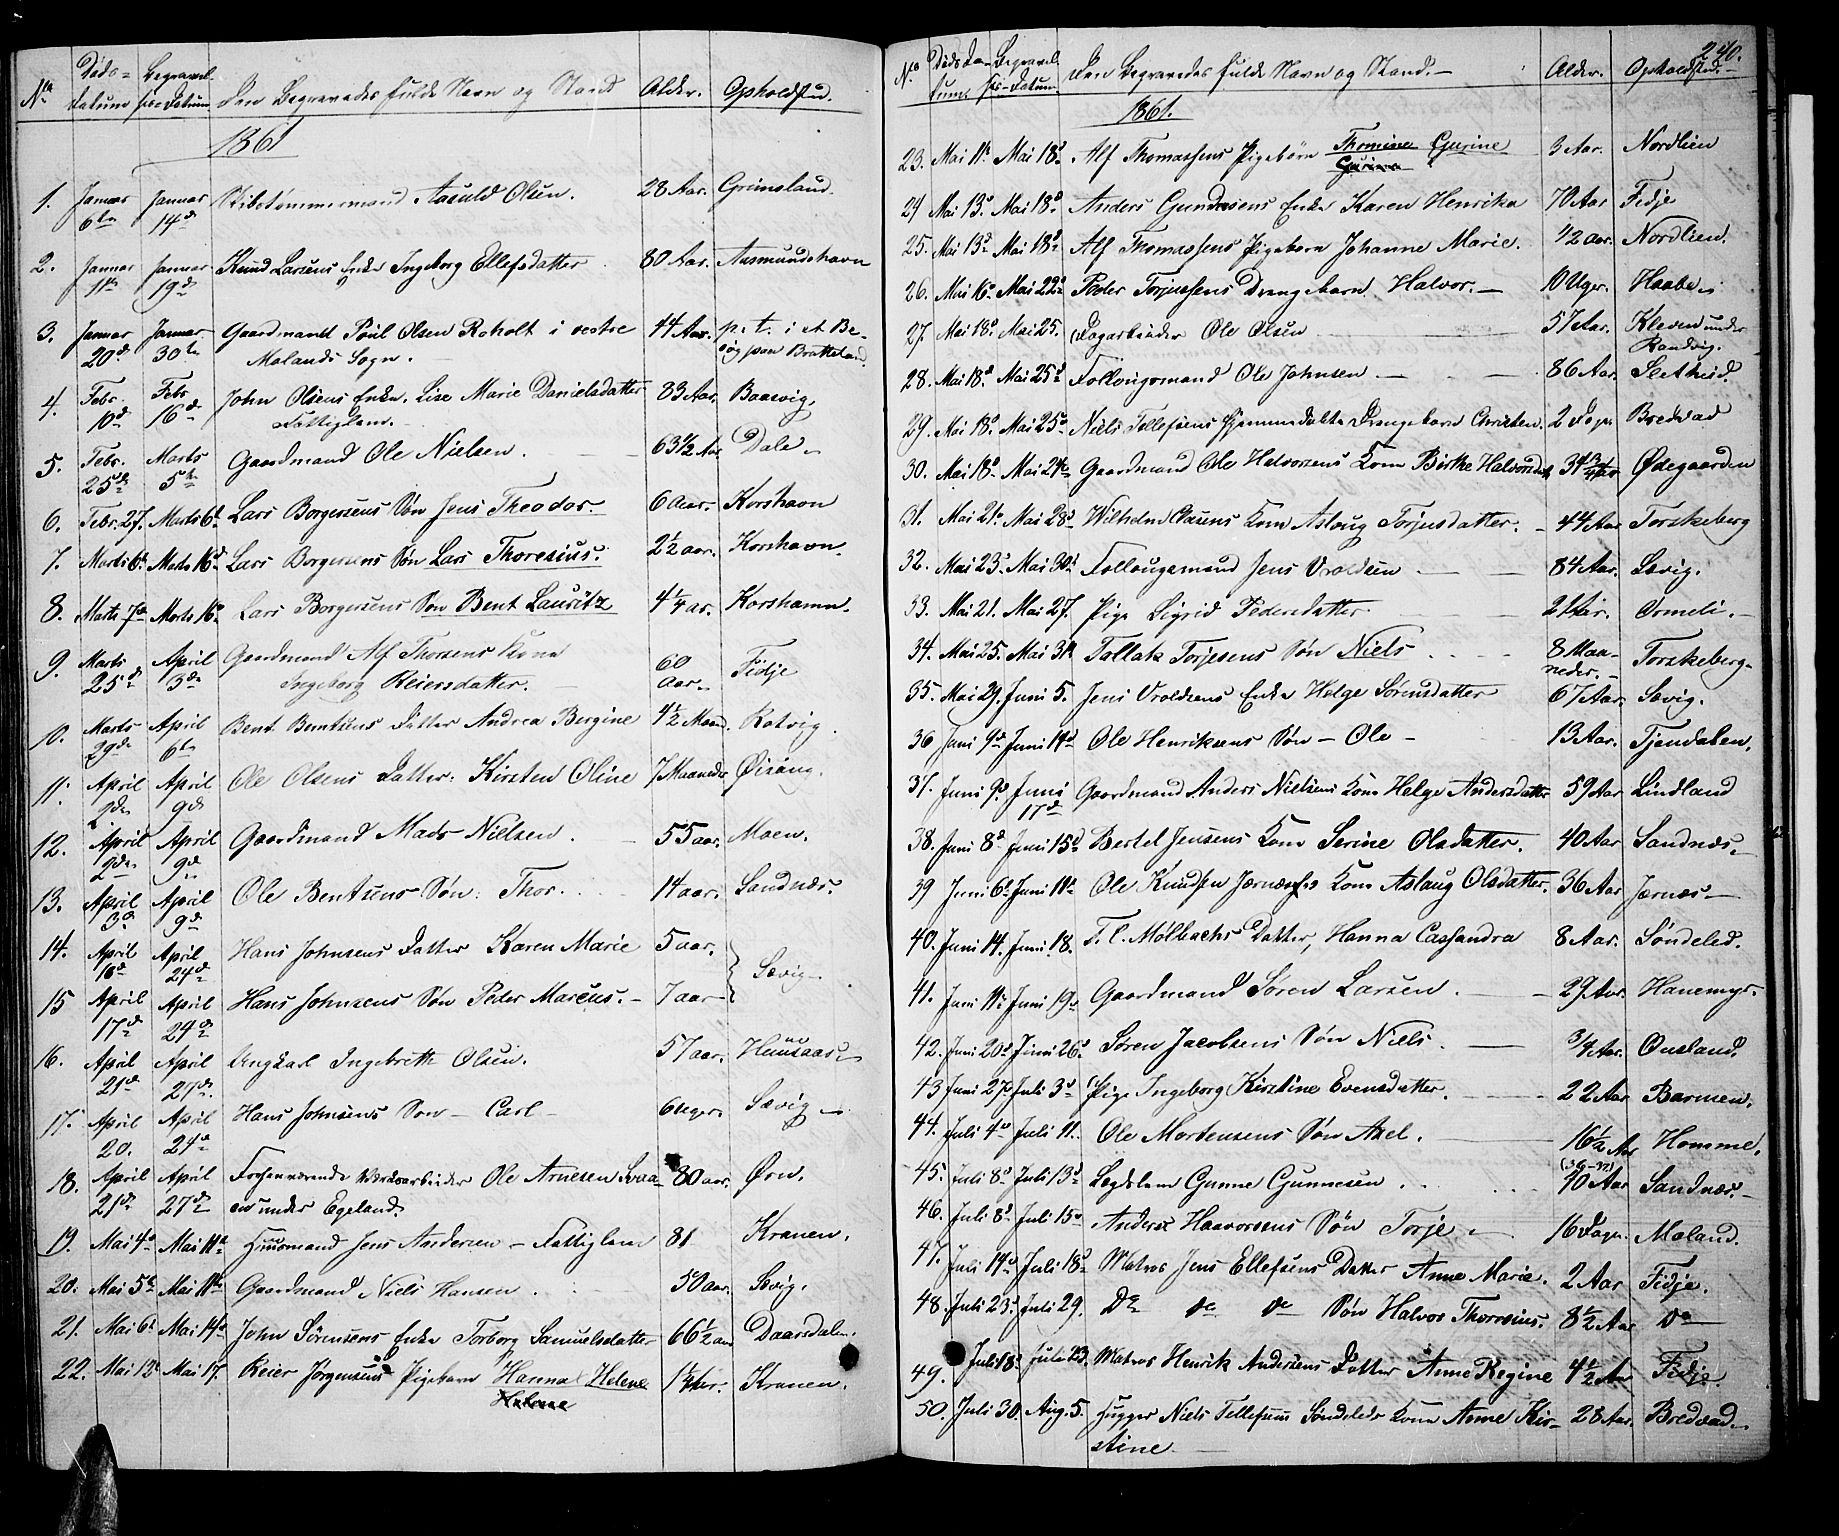 No. Døds= datum Begravel- ses-Datum Den Begravedes fulde Navn og Stand Alder. Opholdsted.
1861
1. Januar 6te Januar 14de Skibstømmermand Aasuld Olsen. 28 Aar. Grimsland.
2. Januar 11te Januar 19de Knud Larsens Enke Ingeborg Ellefsdatter 80 Aar. Aasmundshavn
3. Januar 20de Januar 30te Gaardmand Poul Olsen Roholt i vestre 44 Aar. p. t. i et Be-
Molands Sogn. søg paa Bratteland.
4. Febr. 10de Febr 16de John Olsens Enke, Lise Marie Danielsdatter 83 Aar. Baasvig,
Fattiglem.
5. Febr. 25de Marts 5te Gaardmand Ole Nielsen. 63 1/2 Aar Dale
6. Febr. 27. Marts 6te Lars Borgersens Søn Jens Theodor 6 aar. Korshavn
7. Marts 6te Marts 16de Lars Borgersens Søn Lars Thoresius. 2 1/2 aar. Korshavn.
8. Marts 7de Marts 16de Lars Borgersens Søn Bent Lauritz 4 1/4 ar. Korshamn.
9. Marts 25de April 3de Gaardmand Alf Thorsens Kone 60 Aar. Fidje
Ingeborg Reiersdatter.
10. Marts 29de April 6te Bent Bentsens Datter Andrea Bergine 4 1/2 Maan. Rotvig.
11. April 2de April 9de Ole Olsens Datter: Kirsten Oline 7 Maaneder Øisang.
12. April 2de April 9de Gaardmand Mads Nielsen. 55 aar. Moen.
13. April 3de April 9de Ole Bentsens Søn: Thor. 14 aar. Sandnæs.
14. April 16de April 24de Hans Johnsens Datter Karen Marie 5 aar. } Sævig
15 April 17de April 24de Hans Johnsens Søn Peder Marcus. 7 aar
16. April 21de April 27de Ungkarl Ingebreth Olsen. 57 aar. Huusaas
17. April 20. April 24de Hans Johnsens Søn - Carl - 6 uger. Sævig
18. April 21de April 27de Forhenværende Værksarbeider Ole Arnesen Svaa- 80 aar. Øren.
en under Egeland.
19. Mai 4de Mai 11te Huusmand Jens Andersen - Fattiglem 81 Kranen.
20. Mai 5te Mai 11te Gaardmand Niels Hansen 50 aar. Sævig.
21. Mai 6te Mai 14de John Sørensens Enke Torborg Samuelsdatter 66 1/2 aar Daarsdalen.
22. Mai 12te Mai 17. Reier Jørgensens Pigebarn Hanna Helene 1 1/4 Aar. Kranen.
Helene
240.
No. Døds Da- tum. Begravel- ses-Datum. Den Begravedes fulde Navn og Stand. Alder. Opholdsted.
1861.
23. Mai 11te Mai 18de Alf Thomassens Pigebørn Thomine Gurine 3 Aar. Nordlien
Gurine
24 Mai 13de Mai 18de Anders Gundersens Enke Karen Henrika 70 Aar Fidje
25. Mai 13de Mai 18de Alf Thomassens Pigebarn Johanne Marie. 1/2 aar. Nordlien.
26. Mai 16de Mai 22de Peder Torjussens Drengebarn Halvor. 10 Uger. Haabe
27. Mai 18de Mai 25. Dagarbeider Ole Olsen 57 Aar. Kleven under
Randvig.
28. Mai 18de Mai 25de Follougsmand Ole Johnsen 86 Aar. Sletheid.
29. Mai 18de Mai 25de Niels Tellefsens hjemmedøbte Drengebarn Christen. 2 Dager Bredvad
30. Mai 18de Mai 24de Gaardmand Ole Halvorsens Kone Birthe Halvorsdatter 34 3/4 aar Ødegaarden
31. Mai 21de Mai 28de Wilhelm Clasens Kone Aslaug Torjusdatter. 44 Aar Torskeberg
32. Mai 23de Mai 30te Follougsmand Jens Vroldsen 84 Aar. Sævig.
33. Mai 21. Mai 27. Pige Sigrid Pedersdatter 21 Aar. Ormeli.
34. Mai 25. Mai 31te Tallak Torjesens Søn Niels 8 Maa- neder. Torskeberg
35. Mai 29. Juni 5. Jens Vroldsens Enke Helge Sørensdatter 67 Aar. Sævig.
36 Juni 9de Juni 14de Ole Henriksens Søn - Ole - 13 Aar. Tjendalen.
37. Juni 9de Juni 17de Gaardmand Anders Nielsens Kone Helge Andersdatter 59 Aar Lindland
38. Juni 8de Juni 15de Bertel Jensens Kone Serine Olsdatter. 40 Aar Sandnæs.
39 Juni 6te Juni 11te Ole Knudsen Jernæs's Kone Aslaug Olsdatter. 36 Aar Jernæs
40. Juni 14. Juni 18. F. C. Mølbachs Datter, Hanna Cassandra 8 Aar. Søndeled.
41. Juni 11te Juni 19de Gaardmand Søren Larsen. 29 Aar. Hanemyr.
42. Juni 20de Juni 26de Søren Jacobsens Søn Niels. 3/4 Aar. Ousland.
43 Juni 27de Juli 3de Pige Ingeborg Kirstine Evensdatter. 22 Aar Barmen.
44. Juli 4de Juli 11. Ole Mortensens Søn Axel. 16 1/2 Aar Homme.
45. Juli 8de Juli 13de Lægdslem Gunne Gunnesen 70 Aar Sandnæs.
46. Juli 8de Juli 15de Anders Haavorsens Søn Torje 16 Dage. Moland.
47. Juli 14de Juli 18de Matros Jens Ellefsens Datter Anne Marie. 2 Aar Fidje.
48. Juli 23de Juli 29. Do do do Søn Halvor Thoresius. 8 1/2 Aar do
49. Juli 18de Juli 23. Matros Henrik Andersens Datter Anne Regine 4 1/2 Aar Fidje.
50. Juli 30. Aug. 5. Hugger Niels Tellefsens Søndeleds Kone Anne Kir- 28 Aar. Bredvad
stine